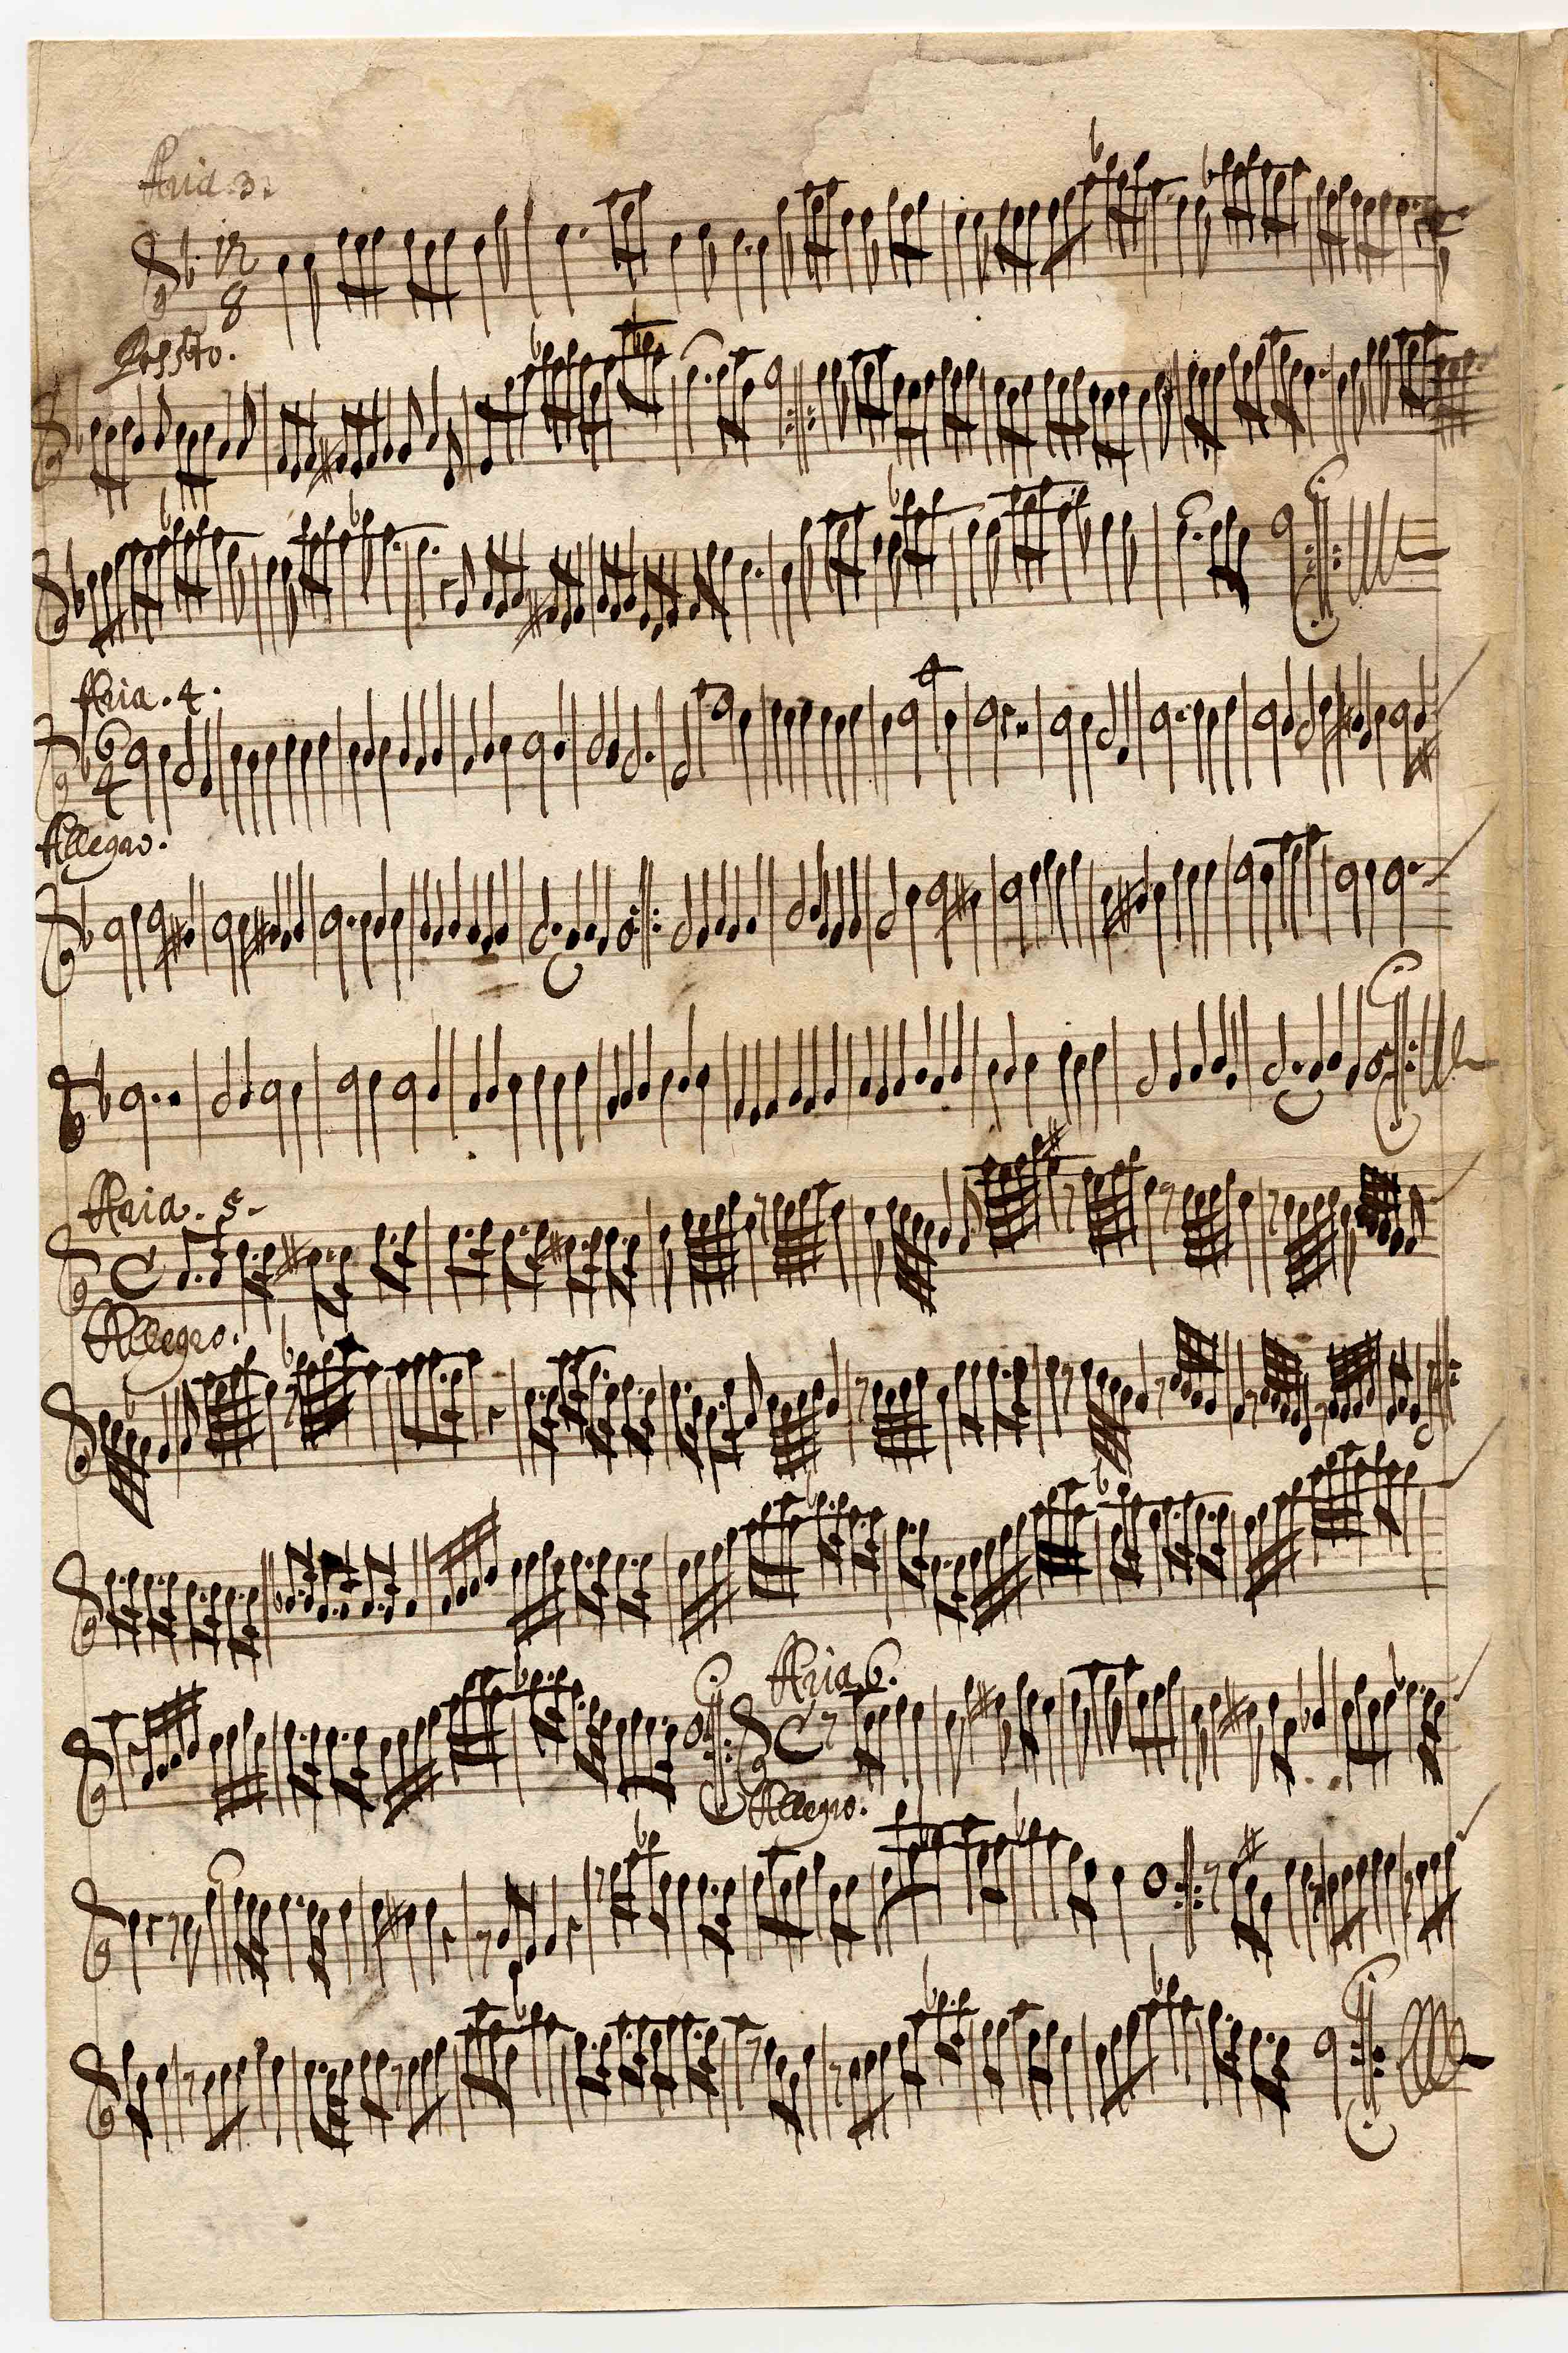 Aria. 3.
12
8
Presto.
Aria. 4.
6
4
Allegro.
Aria. 5.
Allegro.
Aria. 6.
Allegro.